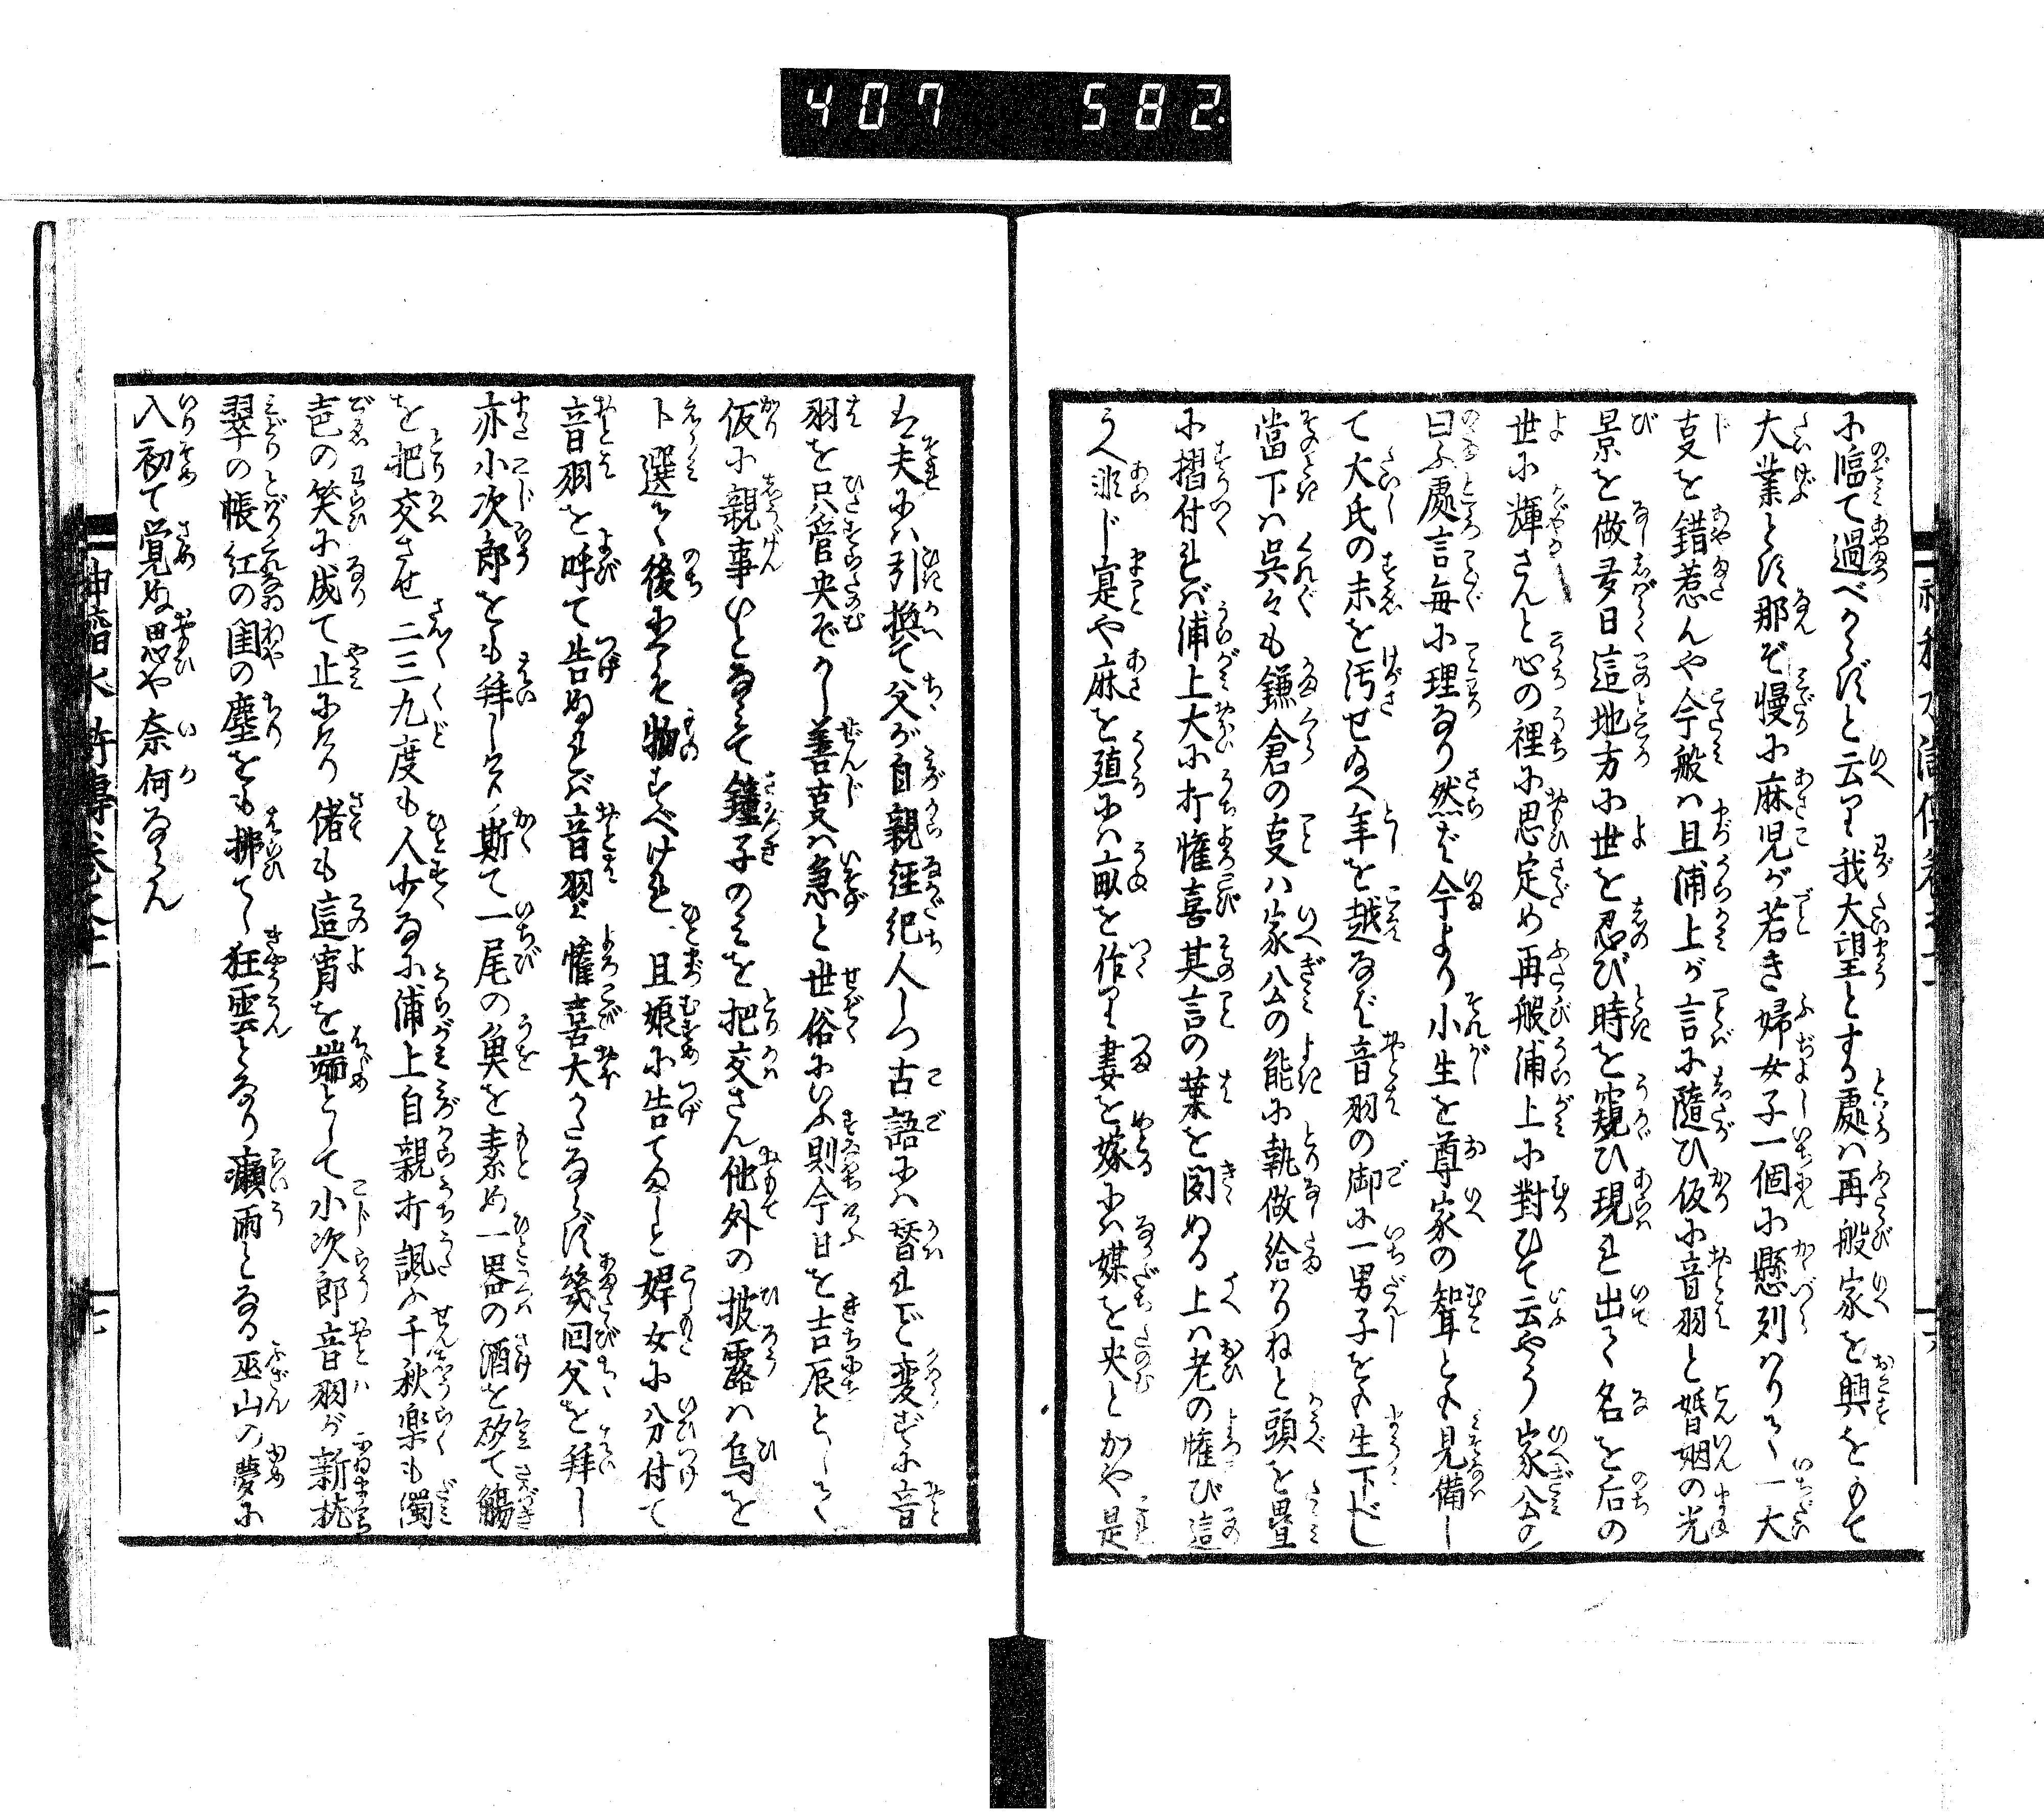 407 582
に臨て過べからずと云り我大望とする處ハ再般家を興をもて
大業とす那ぞ慢に麻児が若き婦女子一個に懸列ハりて一大
事を錯惹んや今般ハ且浦上が言に隨ひ仮に音羽と婚姻の光
景を做多日這地方に世を忍び時を窺ひ現れ出て名を后の
世に輝さんと心の裡に思定め再般浦上に對ひて云やう家公の
曰ふ處言毎に理なり然ば今より小生を尊家の聟とも見備し
て大氏の末を汚せ給へ年を越なば音羽の御に一男子をも生下べし
當下ハ呉々も鎌倉の事ハ家公の能に執做給ハりねと頭を疊
に摺付れバ浦上大に打懽喜其言の葉を聞ぬる上ハ老の懽び這
うへ非じ寔や麻を殖にハ畝を作り妻を娵にハ媒を央とかや是
ハ夫にハ引換て父が自親径紀人しつ古語にハ替れど変ずに音
羽を只管央ぞかし善事ハ急と世俗にいふ則今日を吉辰として
仮に親事ひとなして鐘子のミを把交さん他外の披露ハ烏を
卜選て後にこそ物すべけれ且娘に告てよと婢女に分付て
音羽を呼て告ぬれバ音羽ハ懽喜大かたならず幾回父を拜し
亦小次郎をも拜しつゝ斯て一尾の魚を素め一器の酒を砕て觴
を把交させ二三九度も人少なに浦上自親打諷ふ千秋楽も濁
声の笑に成て止にけり偖も這宵を端として小次郎音羽が新枕
翠の帳紅の閨の塵をも拂て狂雲となり癲雨となる巫山の夢に
入初て覚ぬ思や奈何ならん